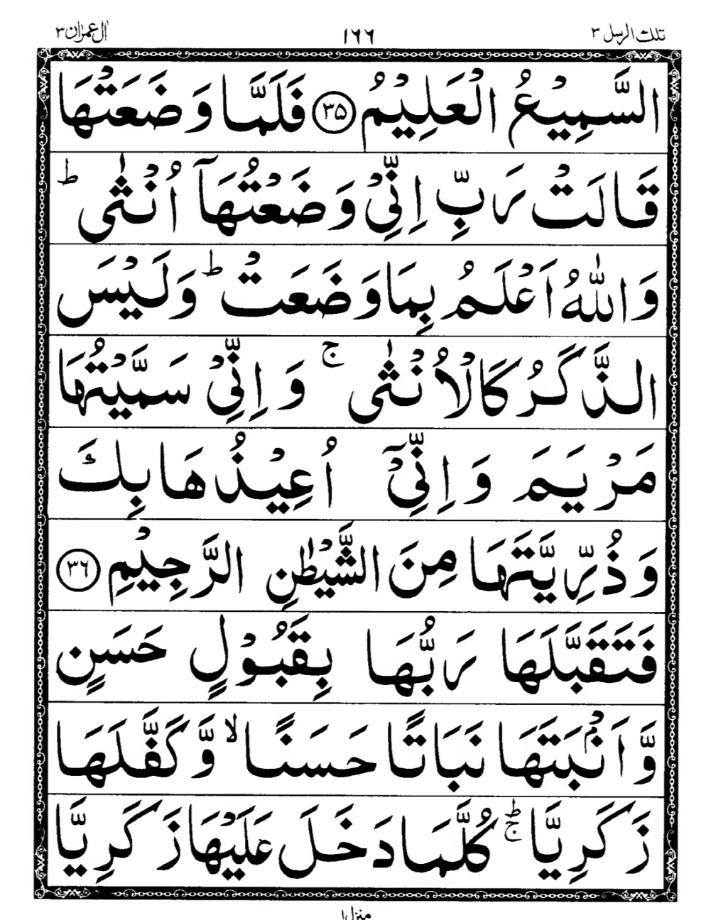 تلك الرسل ٣ ١٦٦ اٰل عمرٰن ٣
السَّمِيْعُ الْعَلِيْمُ ﴿۳۵﴾ فَلَمَّا وَضَعَتْهَا
قَالَتْ رَبِّ اِنِّیْ وَضَعْتُهَاۤ اُنْثٰی ؕ
وَاللّٰهُ اَعْلَمُ بِمَا وَضَعَتْ ؕ وَلَیْسَ
الذَّكَرُ كَالْاُنْثٰی ۚ وَ اِنِّیْ سَمَّیْتُهَا
مَرْیَمَ وَ اِنِّیْۤ اُعِیْذُهَا بِكَ
وَ ذُرِّیَّتَهَا مِنَ الشَّیْطٰنِ الرَّجِیْمِ ﴿۳۶﴾
فَتَقَبَّلَهَا رَبُّهَا بِقَبُوْلٍ حَسَنٍ
وَّ اَنْۢبَتَهَا نَبَاتًا حَسَنًا ۙ وَّ كَفَّلَهَا
زَكَرِیَّا ؕۚ كُلَّمَا دَخَلَ عَلَیْهَا زَكَرِیَّا
منزل ١